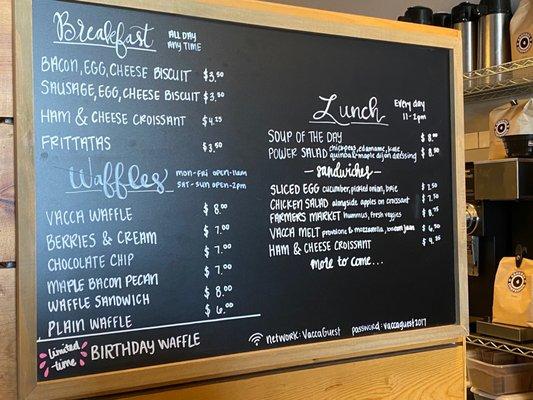 Breakfast
ALL DAY
ANY TIME
BACON, EGG, CHEESE BISCUIT $3.50
SAUSAGE, EGG, CHEESE BISCUIT $3.50
HAM & CHEESE CROISSANT $4.25
FRITTATAS $3.50
Waffles
mon-fri open-11am
sat-sun open-2pm
VACCA WAFFLE $8.00
BERRIES & CREAM $7.00
CHOCOLATE CHIP $7.00
MAPLE BACON PECAN $7.00
WAFFLE SANDWICH $8.00
PLAIN WAFFLE $6.00
limited-time BIRTHDAY WAFFLE
Lunch
Every day
11-2pm
SOUP OF THE DAY $8.00
POWER SALAD chickpeas, edamame, kale,
quinoa & maple dijon dressing $8.50
-sandwiches-
SLICED EGG cucumber, pickled onion, $7.50
CHICKEN SALAD alongside apples on croissant $7.50
FARMERS MARKET hummus, fresh veggies $8.75
VACCA MELT provolone & mozzarella, jam $6.50
HAM & CHEESE CROISSANT $4.25
more to come...
network: VaccaGuest password: vaccaguest2017